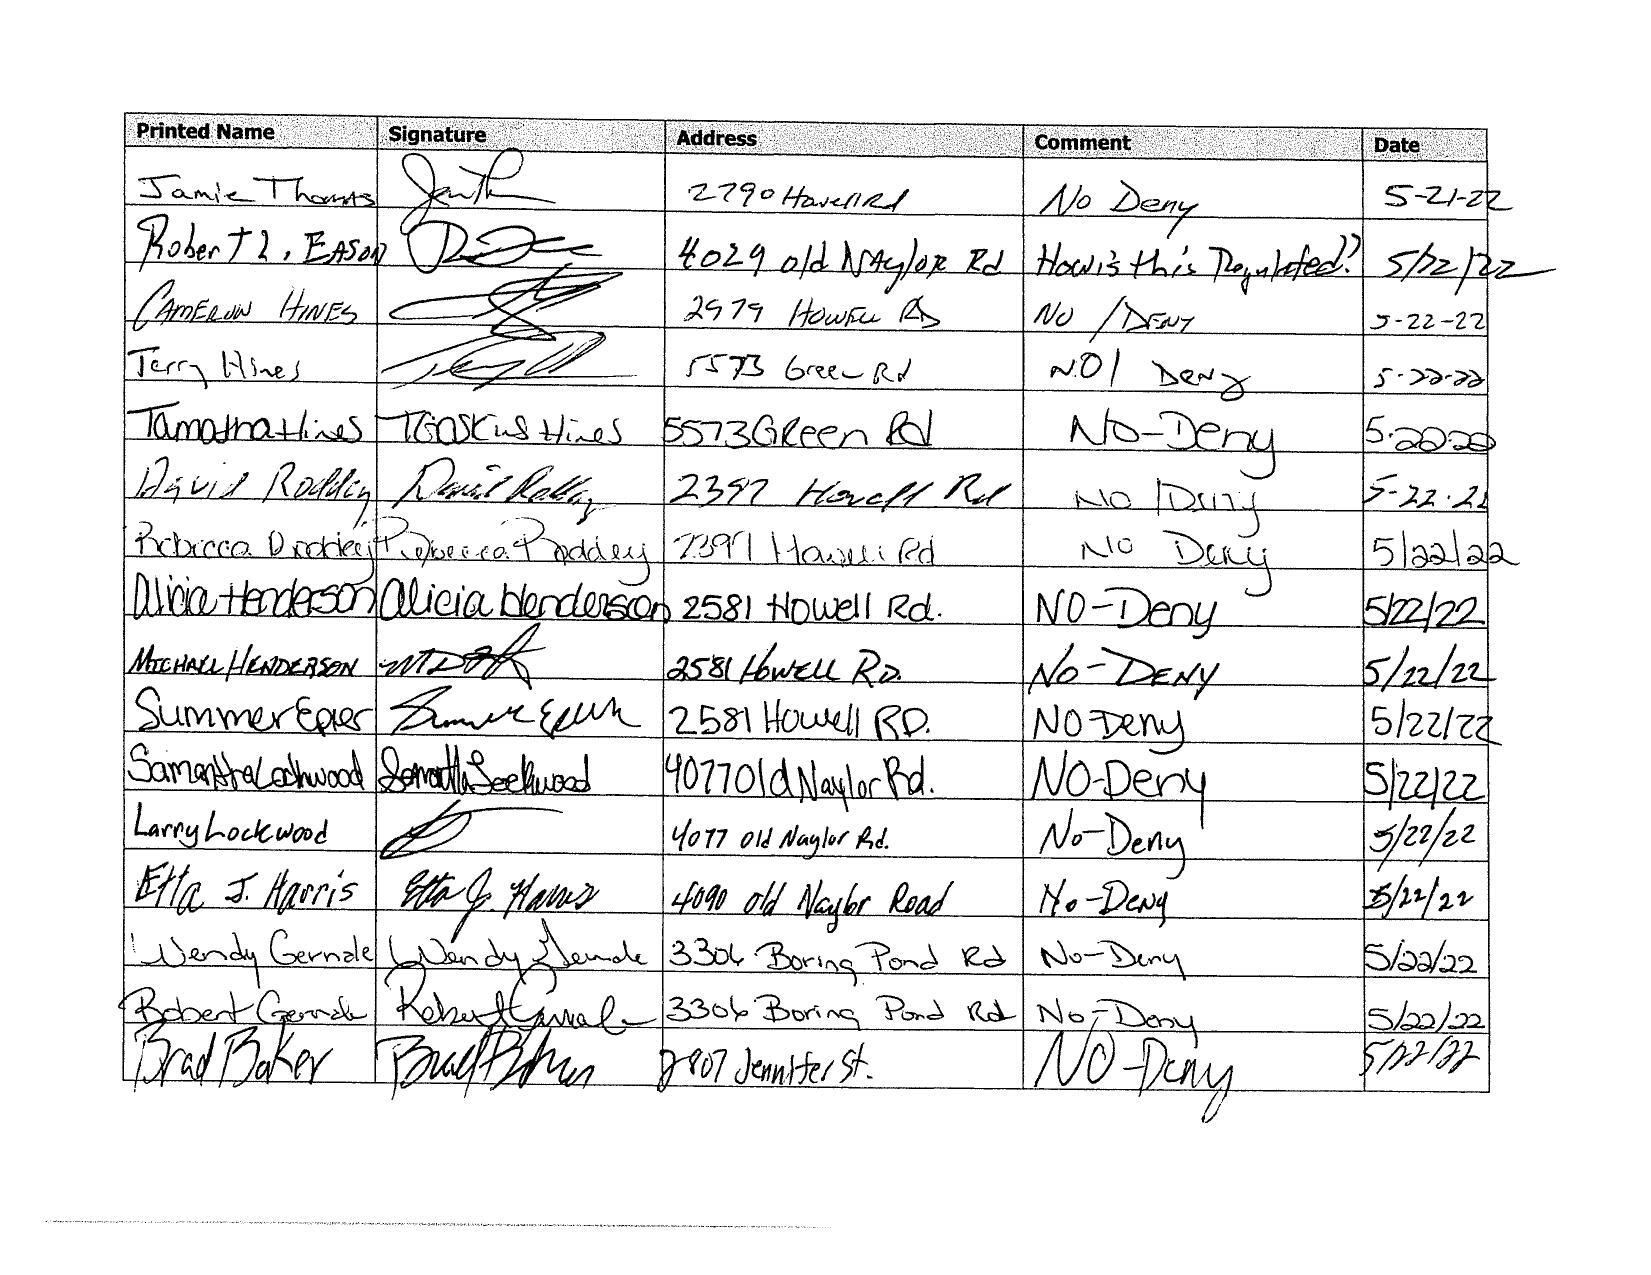 Printed Name Signature Address Comment Date
Jamie Thomas 2790 Howell Rd No Deny 5-21-22
Robert L. EASON 4029 old NAylOR Rd How is this Regulated?? 5/22/22
CAMERON HINES 2979 HOWELL RD NO /DENY 5-22-22
Terry Hines 5573 Green Rd NO/ Deny 5-22-22
Tamatha Hines TGaskins Hines 5573 GReen Rd NO-Deny 5.2020
David Roddey David Roddey 2397 Howell Rd NO /Deny 5-22-22
Rebecca Roddey 2397 Howell Rd NO Deny 5/22/22
Alicia Henderson Alicia Henderson 2581 Howell Rd. NO-Deny 5/22/22
MICHAEL HENDERSON 2581 HOWELL RD. NO-DENY 5/22/22
Summer Epier Summer 2581 Howell RD. NO-Deny 5/22/22
Samantha Lockwood Samantha Lockwood 4077 Old Naylor Rd. NO-Deny 5/22/22
Larry Lockwood 4077 old Naylor Rd. No-Deny 5/22/22
Etta J. Harris Etta J. Harris 4090 old Naylor Road No-Deny 5/22/22
Wendy Gernale Wendy Gernale 3306 Boring Pond Rd No-Deny 5/22/22
Robert Gernale Robert Gernale 3306 Boring Pond Rd No-Deny 5/22/22
Brad Baker Brad Baker 2807 Jennifer St. NO-Deny 5/22/22